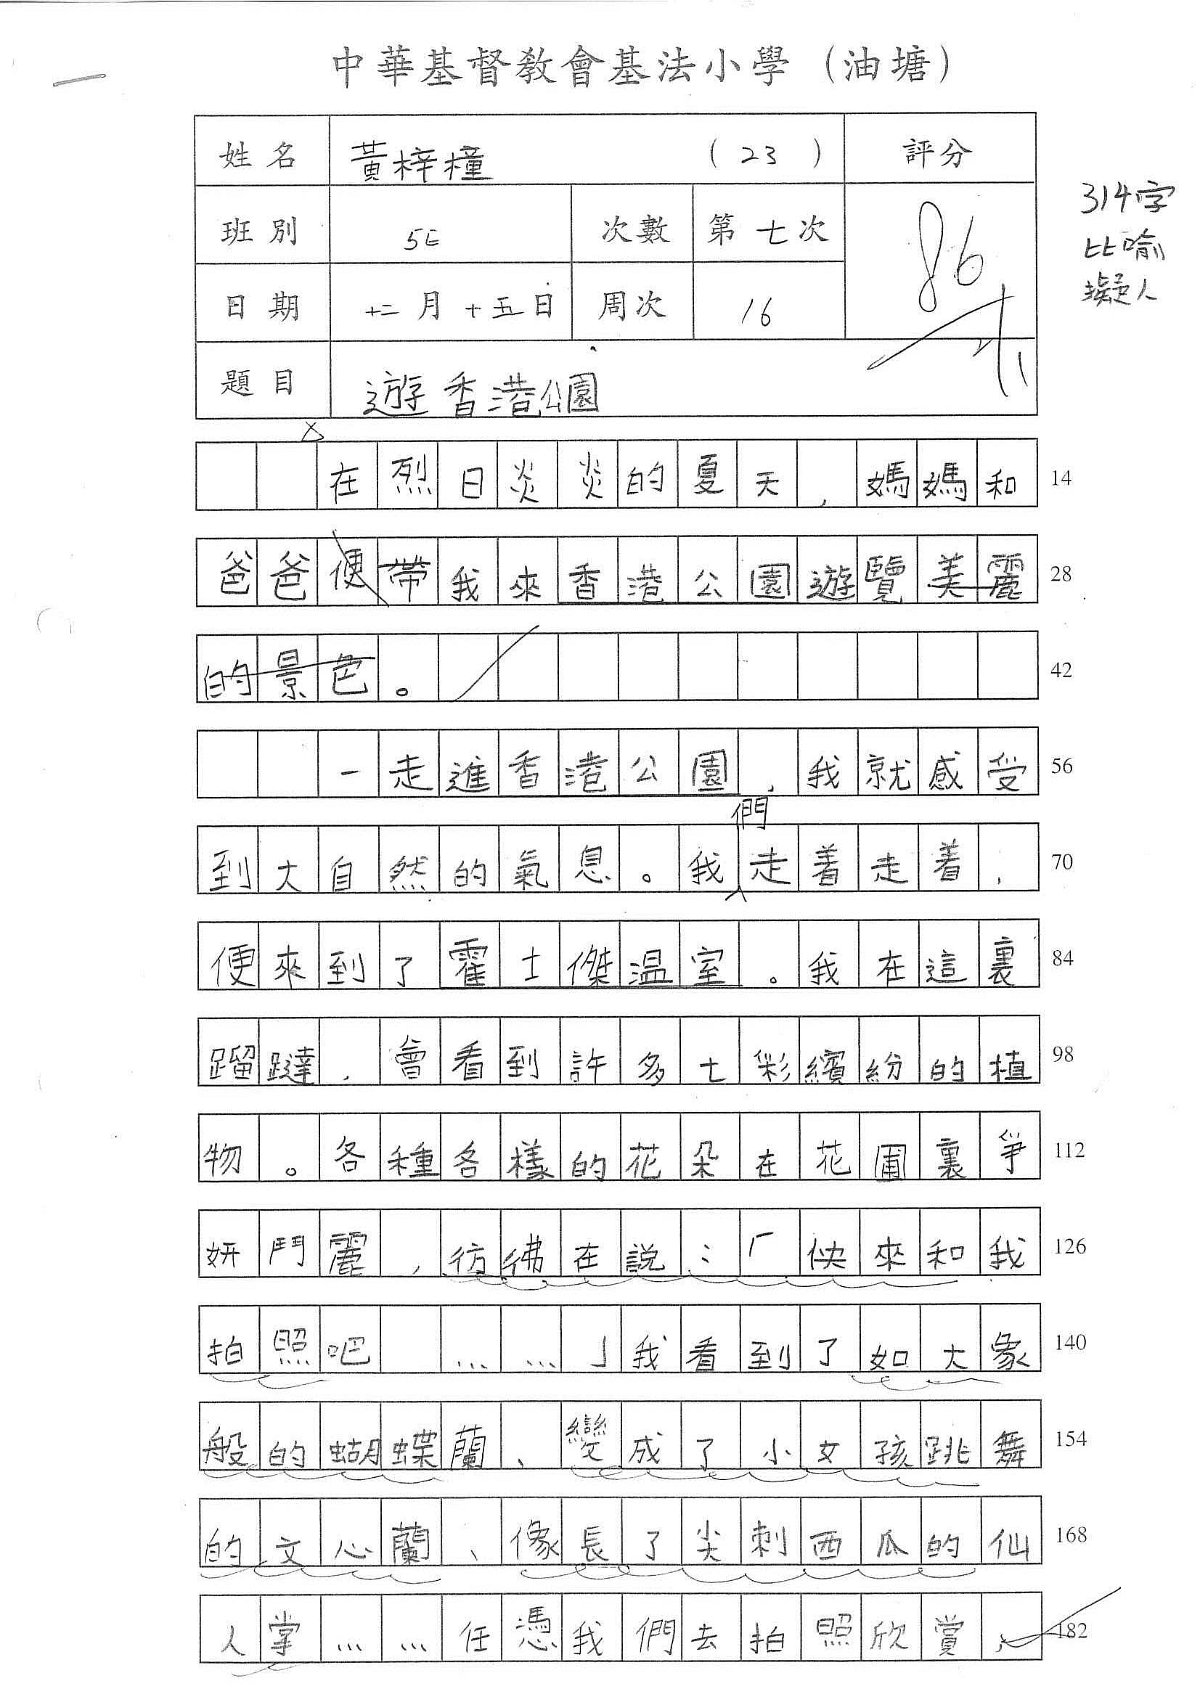 中華基督教會基法小學（油塘）
姓名 黃梓橦 （23） 評分
班別 5E 次數 第七次 86
日期 十二月十五日 周次 16
題目 遊香港公園
314字
比喻
擬人
在烈日炎炎的夏天，媽媽和 14
爸爸便帶我來香港公園遊覽美麗 28
的景色。 42
一走進香港公園，我就感受 56
們
到大自然的氣息。我走着走着， 70
便來到了霍士傑温室。我在這裏 84
蹓躂，會看到許多七彩繽紛的植 98
物。各種各樣的花朵在花圃裏爭 112
妍鬥麗，彷彿在說：「快來和我 126
拍照吧……」我看到了如大象 140
般的蝴蝶蘭、變成了小女孩跳舞 154
的文心蘭、像長了尖刺西瓜的仙 168
人掌……任憑我們去拍照欣賞、 182